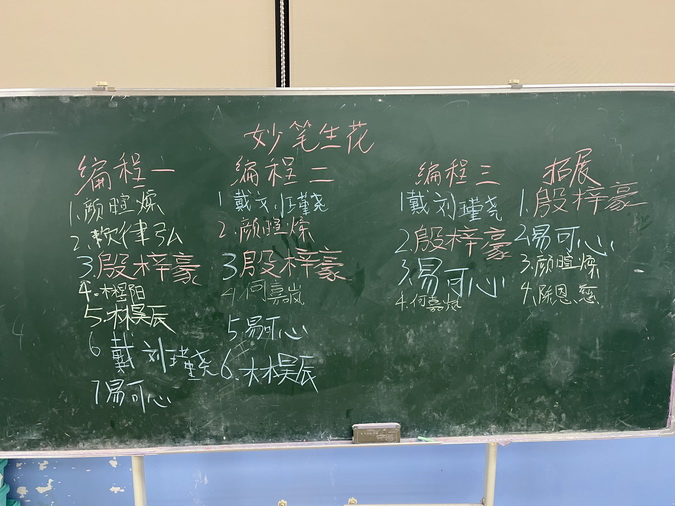 妙笔生花
编程一
1.颜暄燊
2.软律弘
3.殷梓豪
4.林程阳
5.林昊辰
6 戴刘瑾尧
7易可心
编程二
1戴刘瑾尧
2.颜暄燊
3殷梓豪
4.何嘉岚
5.易可心
6.林昊辰
编程三
1戴刘瑾尧
2殷梓豪
3.易可心
4.何嘉岚
拓展
1.殷梓豪
2易可心
3.颜暄燊
4.陈恩慈